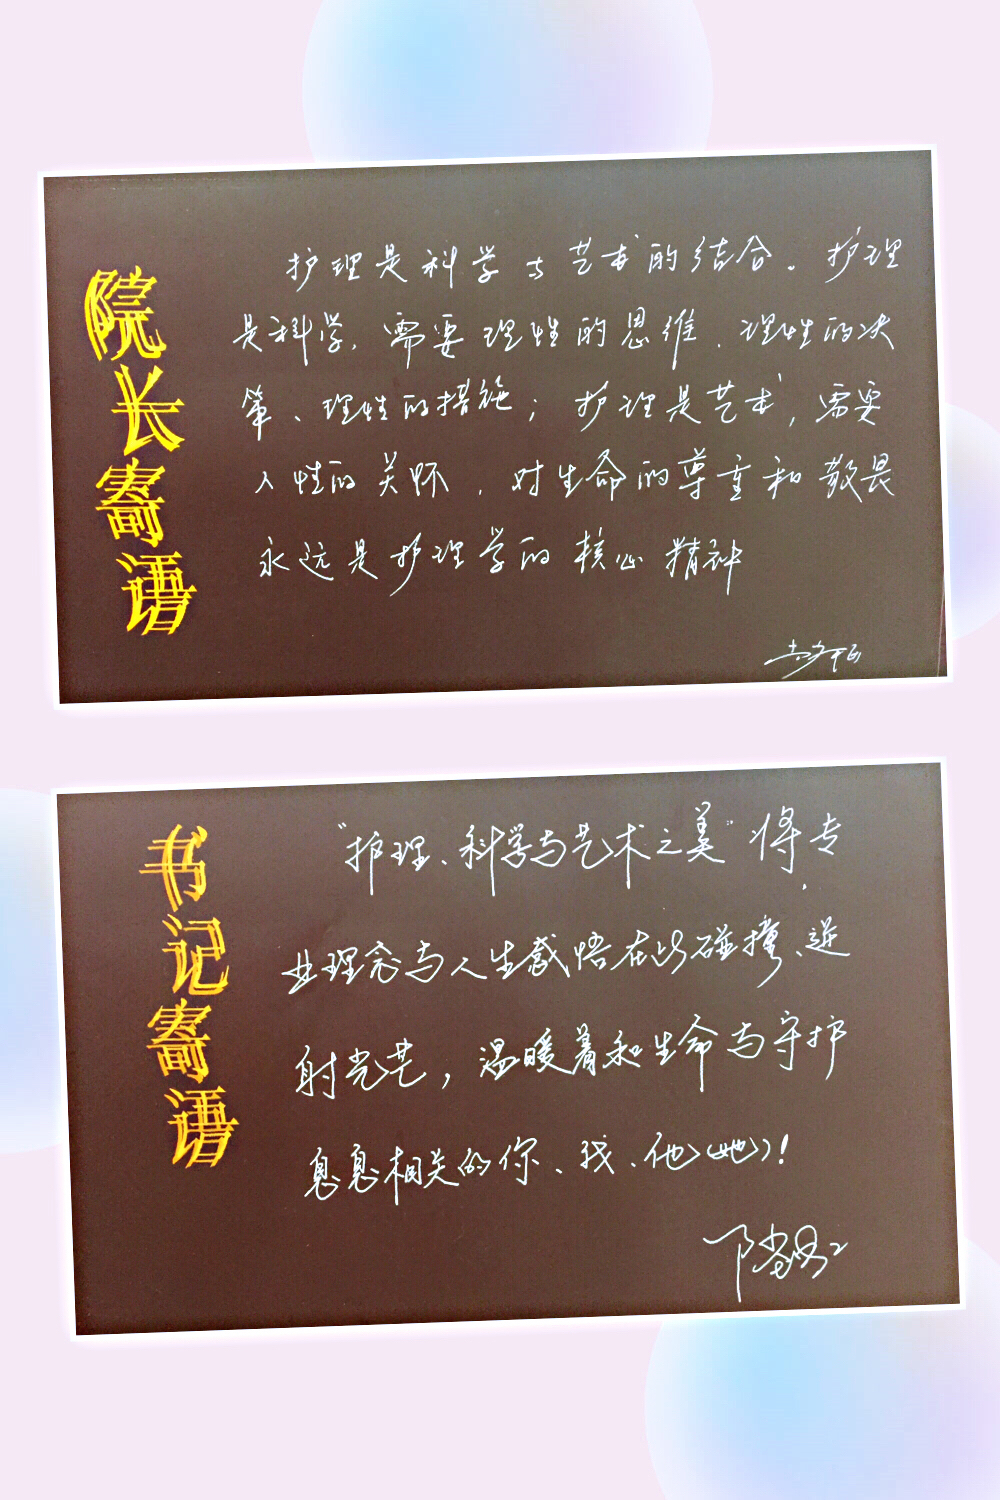 院长寄语
护理是科学与艺术的结合。护理
是科学,需要理性的思维、理性的决
策、理性的措施；护理是艺术,需要
人性的关怀,对生命的尊重和敬畏
永远是护理学的核心精神
书记寄语
"护理、科学与艺术之美"将专
业理念与人生感悟在此碰撞、迸
射光芒,温暖着和生命与守护
息息相关的你、我、他(她)!